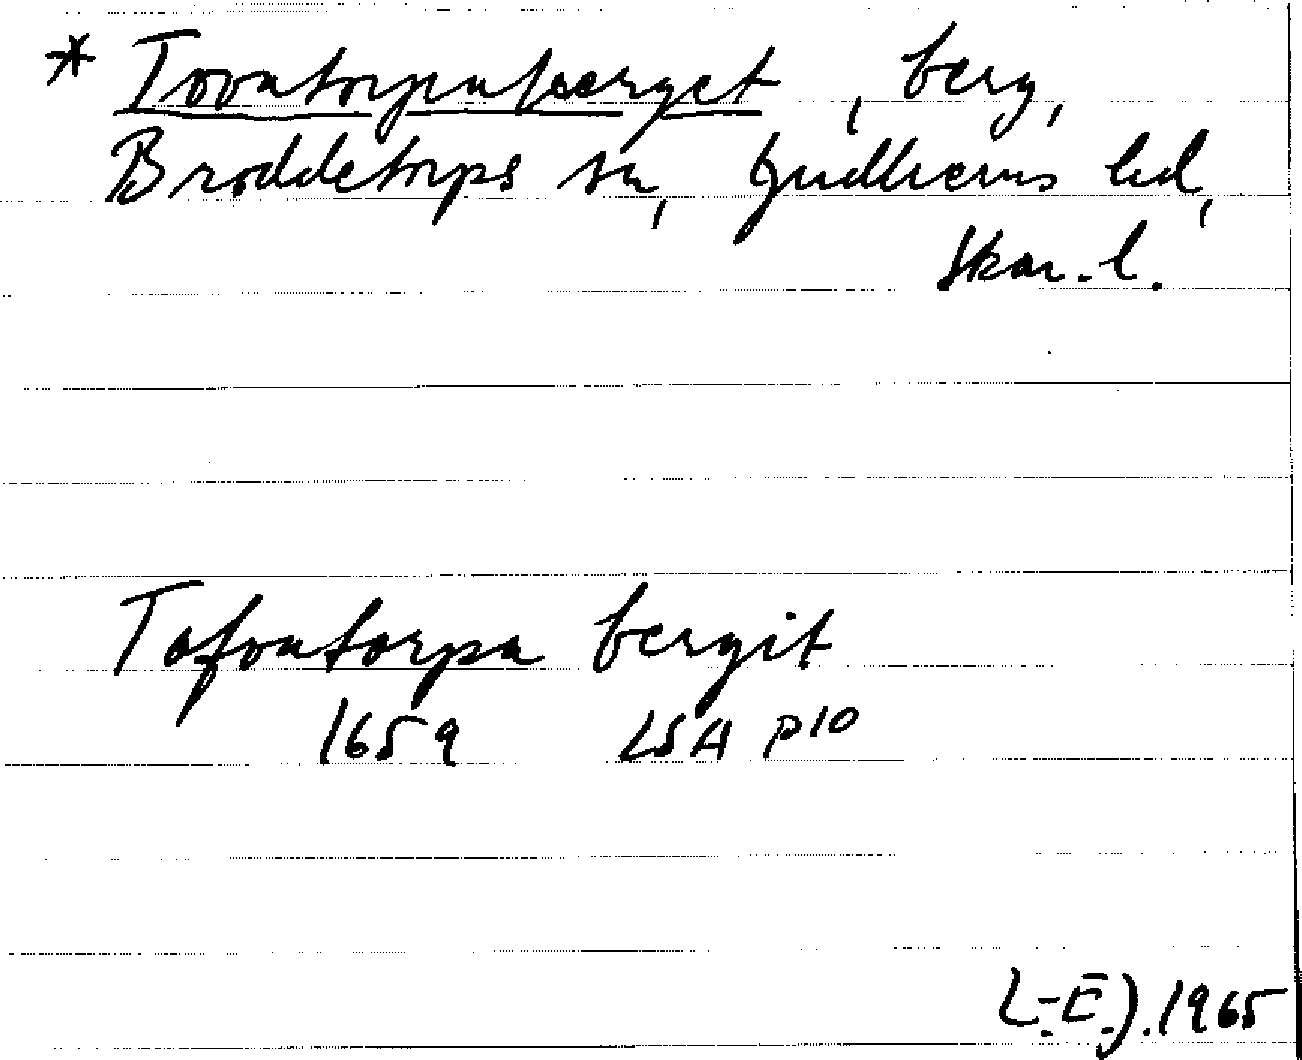 * Tovatorpaberget, berg,
Broddetorps sn, Gudhems hd,
Skar. l.
Tafvatorpa bergit
1659 LSA P10
L-E.J. 1965